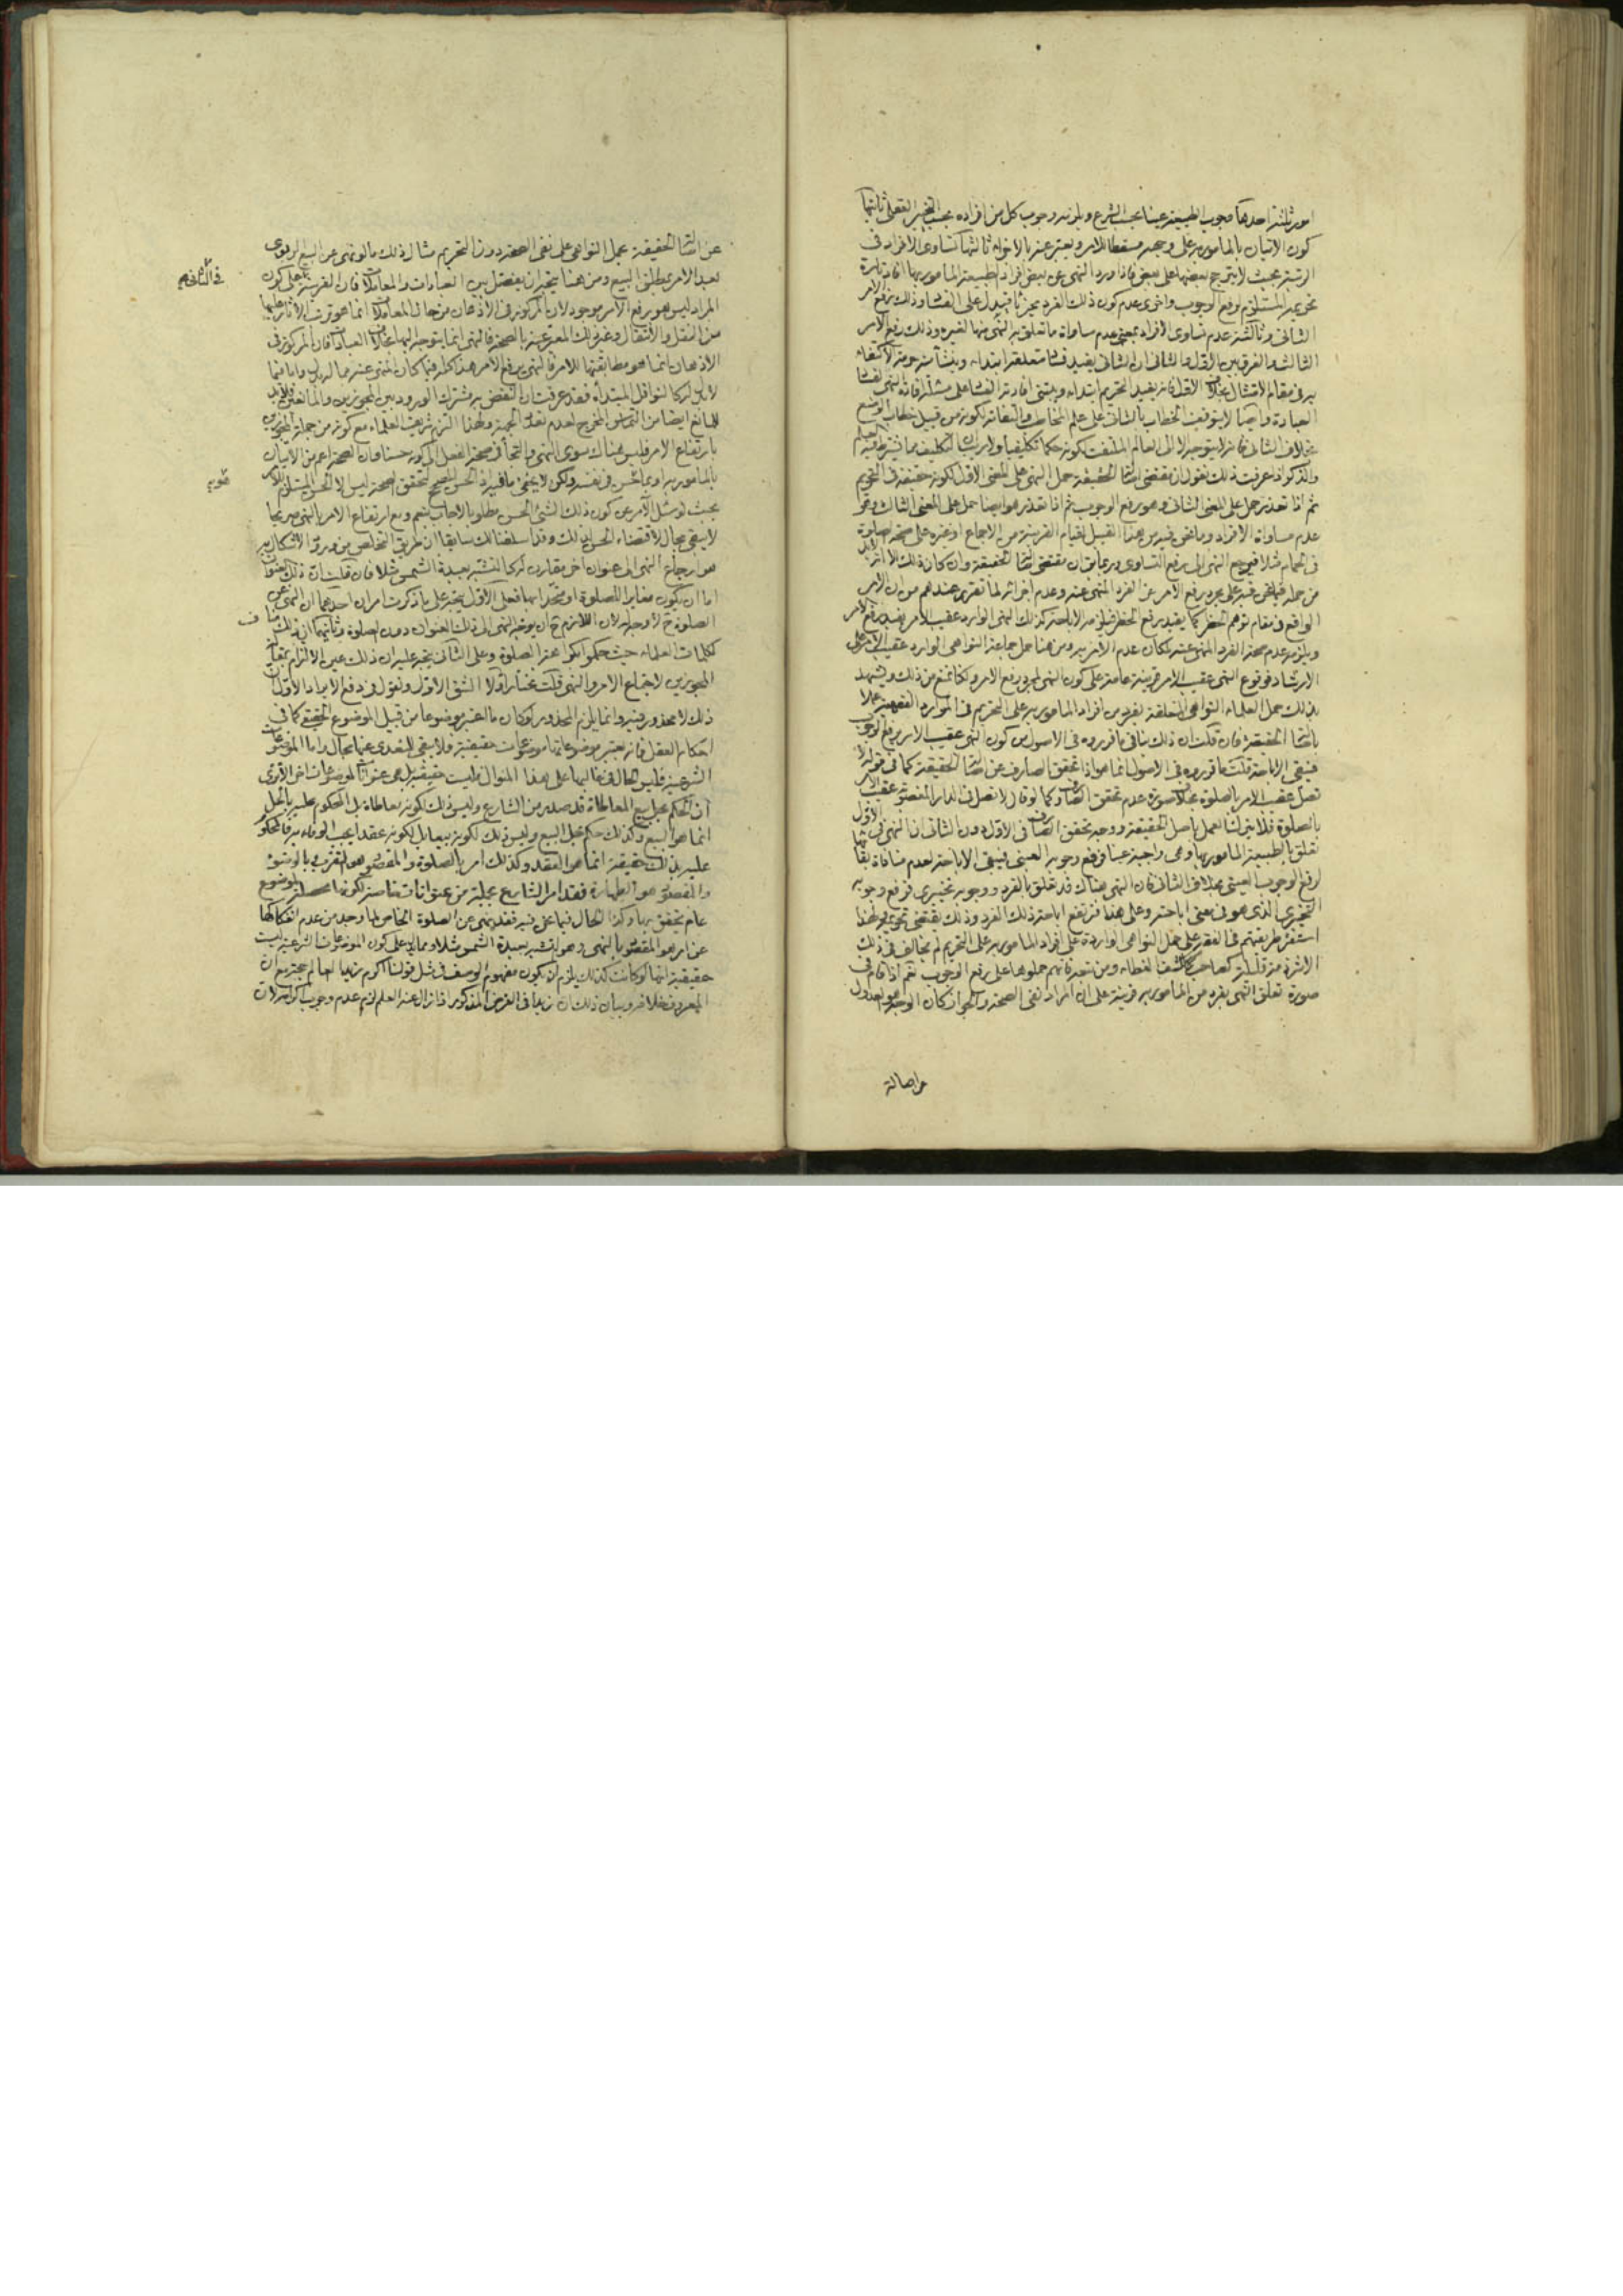 امور ثلثة احدها وجوب الطبيعة عينا بحسب الشرع ويلزمه وجوب كل من افراده بحسب التخيير العقلى ثانيها
كون الاتيان بالمأمور به على وجهه مسقطا للامر ويعبر عنه بالاجزاء ثالثها تساوى الافراد فى
الرتبة بحيث لا يترجح بعضها على بعض فاذا ورد النهى عن بعض افراد الطبيعة المأمور بها افاد تارة
تحريمه المستلزم لرفع الوجوب واخرى عدم كون ذلك الفرد مجزيا فيدل على الفساد وذلك برفع الامر
الثانى وثالثة عدم تساوى الافراد بمعنى عدم مساواة ما تعلق به النهى منها لغيره وذلك رفع الامر
الثالث والفرق بين الاول والثانى ان الثانى يفيد فساد متعلقه ابتداء وينشأ منه حرمة الاكتفاء
به فى مقام الامتثال بخلاف الاول فانه يفيد التحريم ابتداء ويبتنى افادته الفساد على مسئلة افادة النهى لفساد
العبادة وايضا لا يتوقف الخطاب بالثانى على علم المخاطب والتفاته لكونه من قبيل خطاب الوضع
بخلاف الثانى فانه لا يتوجه الا الى العالم الملتفت لكونه حكما تكليفيا ولا ريب ان التكليف مما يشترط فيه العلم
والذكر اذا عرفت ذلك نقول ان مقتضى اصالة الحقيقة حمل النهى على المعنى الاول لكونه حقيقة فى التحريم
ثم اذا تعذر حمل على المعنى الثانى وهو رفع الوجوب ثم اذا تعذر هو ايضا حمل على المعنى الثالث وهو
عدم مساواة الافراد وما نحن فيه من هذا القبيل لقيام القرينة من الاجماع او غيره على صحة الصلوة
فى الحمام مثلا فيرجع النهى الى رفع التساوى وربما يق ان مقتضى اصالة الحقيقة وان كان ذلك الا انه لا بد
من حمله فيما نحن فيه على مجرد رفع الامر عن الفرد المنهى عنه وعدم اجزائه لما تقرر عندهم من ان الامر
الواقع فى مقام توهم الحظر كما يفيد رفع الحظر فيلزمه الاباحة كذلك النهى الوارد عقيب الامر يفيد رفع الامر
ويلزمه عدم صحة الفرد المنهى عنه لمكان عدم الامر به ومن هنا حمل جماعة النواهى الواردة عقيب الامر على
الارشاد فوقوع النهى عقيب الامر قرينة عامة على كون النهى لمجرد رفع الامر ولكنا نمنع من ذلك ويشهد
بذلك حمل العلماء النواهى المتعلقة بفرد من افراد المأمور به على التحريم فى الموارد الفقهية عملا
باصالة الحقيقة فان قلت ان ذلك ينافى ما قرروه فى الاصول من كون النهى عقيب الامر يرفع الوجوب
فيبقى الاباحة قلت ما قرروه فى الاصول انما هو اذا تحقق الصارف عن اصالة الحقيقة كما فى قوله لا
تصل عقيب الامر بالصلوة بخلاف صورة عدم تحقق الصارف كما لو قال لا تصل فى الدار المغصوبة عقيب الامر
بالصلوة فلا يترك العمل باصل الحقيقة ووجه تحقق الصارف فى الاول دون الثانى ان النهى فى الاول
تعلق بالطبيعة المأمور بها وهى واجبة عينا فرفع وجوبه العينى فيبقى الاباحة لعدم منافاة بقائها
لرفع الوجوب العينى بخلاف الثانى فان النهى هناك قد تعلق بالفرد ووجوبه تخييرى فرفع وجوبه
التخييرى الذى هو فى معنى اباحته وعلى هذا فترتفع اباحة ذلك الفرد وذلك يقتضى تحريمه ولهذا
استقر طريقتهم فى الفقه على حمل النواهى الواردة على افراد المأمور به على التحريم لم يخالف فى ذلك
الا شرذمة قليلة كصاحب كاشف الغطاء ومن تبعه فانهم حملوها على رفع الوجوب نعم اذا قام فى
صورة تعلق النهى بفرد من المأمور به قرينة على ان المراد نفى الصحة والاجزاء كان الوجه هو العدول
عن اصالة
عن اصالة الحقيقة بحمل النواهى على نفى الصحة دون التحريم مثال ذلك ما لو نهى عن البيع الربوى
بعد الامر بمطلق البيع ومن هنا يتجه ان يفصل بين العبادات والمعاملات فان القرينة على كون
فى الثانى قائمة
المراد ليس هو رفع الامر موجود لان المركوز فى الاذهان من حال المعاملات انما هو ترتب الاثار عليها
من النقل والانتقال وغير ذلك المعبر عنه بالصحة فالنهى انما يتوجه اليها بخلاف العبادات فان المركوز فى
الاذهان انما هو مطابقتها للامر فالنهى يرفع الامر هذا كله فيما كان للمنهى عنه من البدل واما فيما
لا بدل له كالنوافل المبتدأة فقد عرفت ان النقض به مشترك الورود بين المجوزين والمانعين فلا بد
للمانع ايضا من التماس المخرج لعدم تعدد الجهة ولهذا التزم شريف العلماء مع كونه من جملة المجوزين
بارتفاع الامر فليس هناك سوى النهى والتجأ فى صحة الفعل الى كونه حسنا وان الصحة اعم من الاتيان
بالمأمور به او بما حسن فى نفسه ولكن لا يخفى ما فيه اذ الحسن المصحح لتحقق الصحة ليس الا الحسن المستلزم للامر
بحيث لو سئل الآمر عن كون ذلك الشئ الحسن مطلوبا لاجاب بنعم ومع ارتفاع الامر بالنهى صريحا
لا يبقى مجال لاقتضاء الحسن لذلك وقد اسلفنا لك سابقا ان طريق التخلص من ورود الاشكال به
هو ارجاع النهى الى عنوان آخر مقارن له كالتشبه بعبدة الشمس مثلا فان قلت ان ذلك العنوان
اما ان يكون مغايرا للصلوة او متحدا معها فعلى الاول يتجه على ما ذكرت امران احدهما ان النهى عن
الصلوة ح لا وجه له لان اللازم ح ان يوجه النهى الى ذلك العنوان دون الصلوة وثانيهما ان ذلك مناف
لكلمات العلماء حيث حكموا بكراهة الصلوة وعلى الثانى يتجه عليه ان ذلك عين الالتزام بمقالة
المجوزين لاجتماع الامر والنهى قلت نختار اولا الشق الاول ونقول فى دفع الايراد الاول ان
ذلك لا محذور فيه وانما يلزم المحذور لو كان ما اعتبر موضوعا من قبيل الموضوع الحقيقى كما فى
احكام العقل فانه يعتبر موضوعاتها موضوعات حقيقية ولا يبقى للتعدى عنها مجال واما الموضوعات
الشرعية فليس الحال فى غالبها على هذا المنوال فليست حقيقية بل هى عنوانات لموضوعات اخر الا ترى
ان الحكم بحل بيع المعاطاة قد صدر من الشارع وليس ذلك لكونه معاطاة بل المحكوم عليه بالحل
انما هو البيع وكذلك حكم بحل البيع وليس ذلك لكونه بيعا بل لكونه عقدا يجب الوفاء به فالمحكوم
عليه بذلك حقيقة انما هو العقد وكذلك امر بالصلوة والمقصود هو التقرب بها وبالوضوء
والمقصود هو الطهارة فقد امر الشارع بجملة من عنوانات خاصة لكونها محصلة لموضوع
عام يتحقق بها وكذا الحال فيما نحن فيه فقد نهى عن الصلوة الخاصة لما وجد من عدم انفكاكها
عن امر هو المقصود بالنهى وهو التشبه بعبدة الشمس مثلا ومما يدل على كون الموضوعات الشرعية ليست
حقيقية انها لو كانت كذلك يلزم ان يكون مفهوم الوصف فى مثل قولنا اكرم زيدا العالم حجة مع ان
المعروف خلافه وبيان ذلك ان زيدا فى الفرض المذكور اذا زال عنه العلم لزم عدم وجوب اكرامه لان